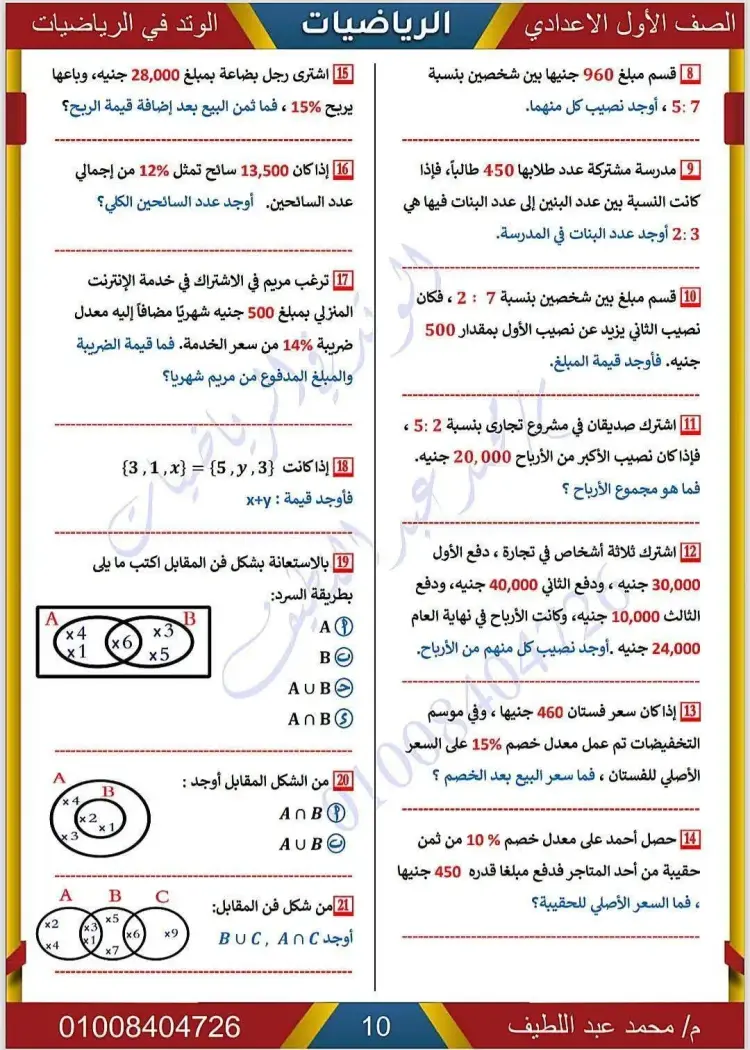 الصف الأول الاعدادي
الرياضيات
الوتد في الرياضيات
8 قسم مبلغ 960 جنيها بين شخصين بنسبة
7 :5 ، أوجد نصيب كل منهما.
9 مدرسة مشتركة عدد طلابها 450 طالباً، فإذا
كانت النسبة بين عدد البنين إلى عدد البنات فيها هي
3 :2 أوجد عدد البنات في المدرسة.
10 قسم مبلغ بين شخصين بنسبة 7 : 2 ، فكان
نصيب الثاني يزيد عن نصيب الأول بمقدار 500
جنيه. فأوجد قيمة المبلغ.
11 اشترك صديقان في مشروع تجارى بنسبة 2 :5 ،
فإذا كان نصيب الأكبر من الأرباح 20,000 جنيه.
فما هو مجموع الأرباح ؟
12 اشترك ثلاثة أشخاص في تجارة ، دفع الأول
30,000 جنيه ، ودفع الثاني 40,000 جنيه، ودفع
الثالث 10,000 جنيه، وكانت الأرباح في نهاية العام
24,000 جنيه .أوجد نصيب كل منهم من الأرباح.
13 إذا كان سعر فستان 460 جنيها ، وفي موسم
التخفيضات تم عمل معدل خصم 15% على السعر
الأصلي للفستان ، فما سعر البيع بعد الخصم ؟
14 حصل أحمد على معدل خصم % 10 من ثمن
حقيبة من أحد المتاجر فدفع مبلغا قدره 450 جنيها
، فما السعر الأصلي للحقيبة؟
15 اشترى رجل بضاعة بمبلغ 28,000 جنيه، وباعها
بربح 15% ، فما ثمن البيع بعد إضافة قيمة الربح؟
16 إذا كان 13,500 سائح تمثل 12% من إجمالي
عدد السائحين. أوجد عدد السائحين الكلي؟
17 ترغب مريم في الاشتراك في خدمة الإنترنت
المنزلي بمبلغ 500 جنيه شهريًا مضافاً إليه معدل
ضريبة 14% من سعر الخدمة. فما قيمة الضريبة
والمبلغ المدفوع من مريم شهريا؟
18 إذا كانت {3 , 1 , x} = {5 , y , 3}
فأوجد قيمة : x+y
19 بالاستعانة بشكل فن المقابل اكتب ما يلى
بطريقة السرد:
أ A
ب B
ج A ∪ B
د A ∩ B
A B
×4 ×3
×6
×1 ×5
20 من الشكل المقابل أوجد :
أ A ∩ B
ب A ∪ B
A
B
×4
×2
×1
×3
21 من شكل فن المقابل:
أوجد B ∪ C , A ∩ C
A B C
×2 ×3 ×5 ×6 ×9
×4 ×1 ×7
الوتد في الرياضيات
م/ محمد عبد اللطيف
01008404726
م/ محمد عبد اللطيف
10
01008404726